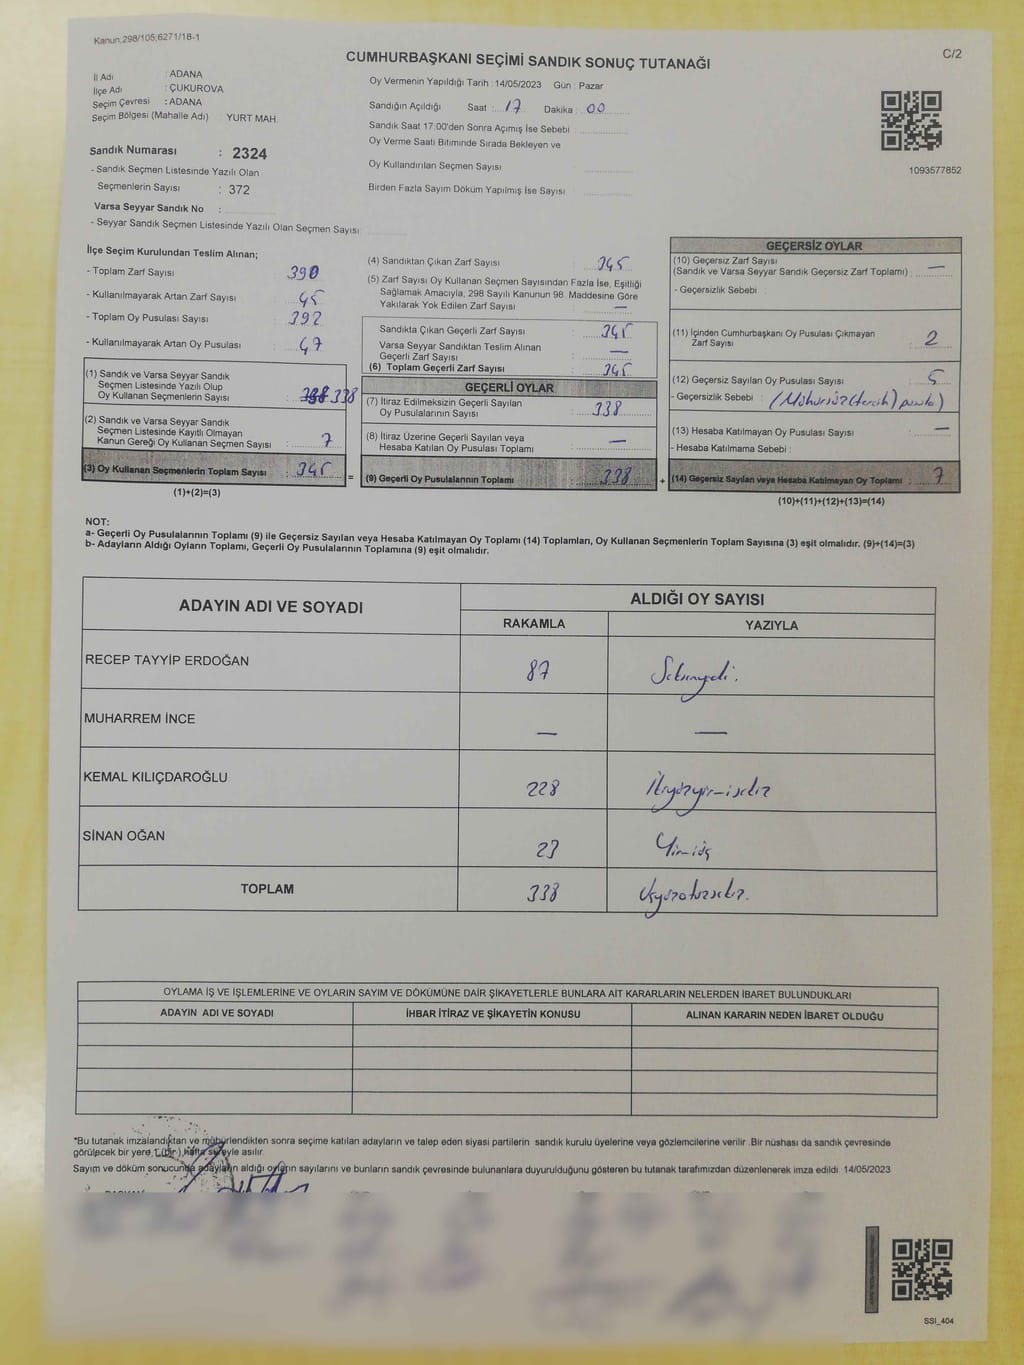 Kanun,298/105;6271/18-1
CUMHURBAŞKANI SEÇİMİ SANDIK SONUÇ TUTANAĞI
C/2
İl Adı : ADANA
İlçe Adı : ÇUKUROVA
Seçim Çevresi : ADANA
Seçim Bölgesi (Mahalle Adı) YURT MAH.
Sandık Numarası : 2324
- Sandık Seçmen Listesinde Yazılı Olan
Seçmenlerin Sayısı : 372
Varsa Seyyar Sandık No :
- Seyyar Sandık Seçmen Listesinde Yazılı Olan Seçmen Sayısı
Oy Vermenin Yapıldığı Tarih : 14/05/2023 Gün : Pazar
Sandığın Açıldığı Saat : 17 Dakika : 00
Sandık Saat 17:00'den Sonra Açımış İse Sebebi :
Oy Verme Saati Bitiminde Sırada Bekleyen ve
Oy Kullandırılan Seçmen Sayısı
Birden Fazla Sayım Döküm Yapılmış İse Sayısı
1093577852
İlçe Seçim Kurulundan Teslim Alınan;
- Toplam Zarf Sayısı 390
- Kullanılmayarak Artan Zarf Sayısı 45
- Toplam Oy Pusulası Sayısı 392
- Kullanılmayarak Artan Oy Pusulası : 47
(1) Sandık ve Varsa Seyyar Sandık
Seçmen Listesinde Yazılı Olup
Oy Kullanan Seçmenlerin Sayısı 338
(2) Sandık ve Varsa Seyyar Sandık
Seçmen Listesinde Kayıtlı Olmayan
Kanun Gereği Oy Kullanan Seçmen Sayısı : 7
(3) Oy Kullanan Seçmenlerin Toplam Sayısı : 345
(1)+(2)=(3)
=
(4) Sandıktan Çıkan Zarf Sayısı : 345
(5) Zarf Sayısı Oy Kullanan Seçmen Sayısından Fazla İse, Eşitliği
Sağlamak Amacıyla, 298 Sayılı Kanunun 98. Maddesine Göre
Yakılarak Yok Edilen Zarf Sayısı : —
Sandıkta Çıkan Geçerli Zarf Sayısı : 345
Varsa Seyyar Sandıktan Teslim Alınan
Geçerli Zarf Sayısı : —
(6) Toplam Geçerli Zarf Sayısı : 345
GEÇERLİ OYLAR
(7) İtiraz Edilmeksizin Geçerli Sayılan
Oy Pusulalarının Sayısı : 338
(8) İtiraz Üzerine Geçerli Sayılan veya
Hesaba Katılan Oy Pusulası Toplamı : —
(9) Geçerli Oy Pusulalarının Toplamı : 338
+
GEÇERSİZ OYLAR
(10) Geçersiz Zarf Sayısı
(Sandık ve Varsa Seyyar Sandık Geçersiz Zarf Toplamı) : —
- Geçersizlik Sebebi :
(11) İçinden Cumhurbaşkanı Oy Pusulası Çıkmayan
Zarf Sayısı : 2
(12) Geçersiz Sayılan Oy Pusulası Sayısı : 5
- Geçersizlik Sebebi : (Mühürsüz (tercih) pusula)
(13) Hesaba Katılmayan Oy Pusulası Sayısı : —
- Hesaba Katılmama Sebebi :
(14) Geçersiz Sayılan veya Hesaba Katılmayan Oy Toplamı : 7
(10)+(11)+(12)+(13)=(14)
NOT:
a- Geçerli Oy Pusulalarının Toplamı (9) ile Geçersiz Sayılan veya Hesaba Katılmayan Oy Toplamı (14) Toplamları, Oy Kullanan Seçmenlerin Toplam Sayısına (3) eşit olmalıdır. (9)+(14)=(3)
b- Adayların Aldığı Oyların Toplamı, Geçerli Oy Pusulalarının Toplamına (9) eşit olmalıdır.
ADAYIN ADI VE SOYADI ALDIĞI OY SAYISI
RAKAMLA YAZIYLA
RECEP TAYYİP ERDOĞAN 87 Seksenyedi.
MUHARREM İNCE — —
KEMAL KILIÇDAROĞLU 228 İkiyüzyirmisekiz
SİNAN OĞAN 23 Yirmiüç
TOPLAM 338 Üçyüzotuzsekiz.
OYLAMA İŞ VE İŞLEMLERİNE VE OYLARIN SAYIM VE DÖKÜMÜNE DAİR ŞİKAYETLERLE BUNLARA AİT KARARLARIN NELERDEN İBARET BULUNDUKLARI
ADAYIN ADI VE SOYADI İHBAR İTİRAZ VE ŞİKAYETİN KONUSU ALINAN KARARIN NEDEN İBARET OLDUĞU
*Bu tutanak imzalandıktan ve mühürlendikten sonra seçime katılan adayların ve talep eden siyasi partilerin sandık kurulu üyelerine veya gözlemcilerine verilir. Bir nüshası da sandık çevresinde
görülecek bir yere, 1 (bir) hafta süreyle asılır.
Sayım ve döküm sonucunda adayların aldığı oyların sayılarını ve bunların sandık çevresinde bulunanlara duyurulduğunu gösteren bu tutanak tarafımızdan düzenlenerek imza edildi 14/05/2023
SSI_404